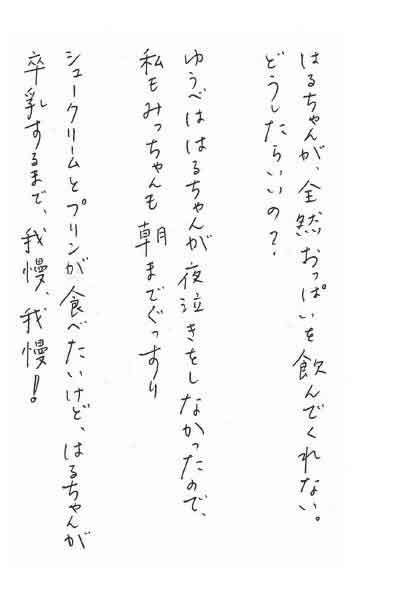 はるちゃんが、全然おっぱいを飲んでくれない。
どうしたらいいの？
ゆうべははるちゃんが夜泣きをしなかったので、
私もみっちゃんも朝までぐっすり
シュークリームとプリンが食べたいけど、はるちゃんが
卒乳するまで、我慢、我慢！